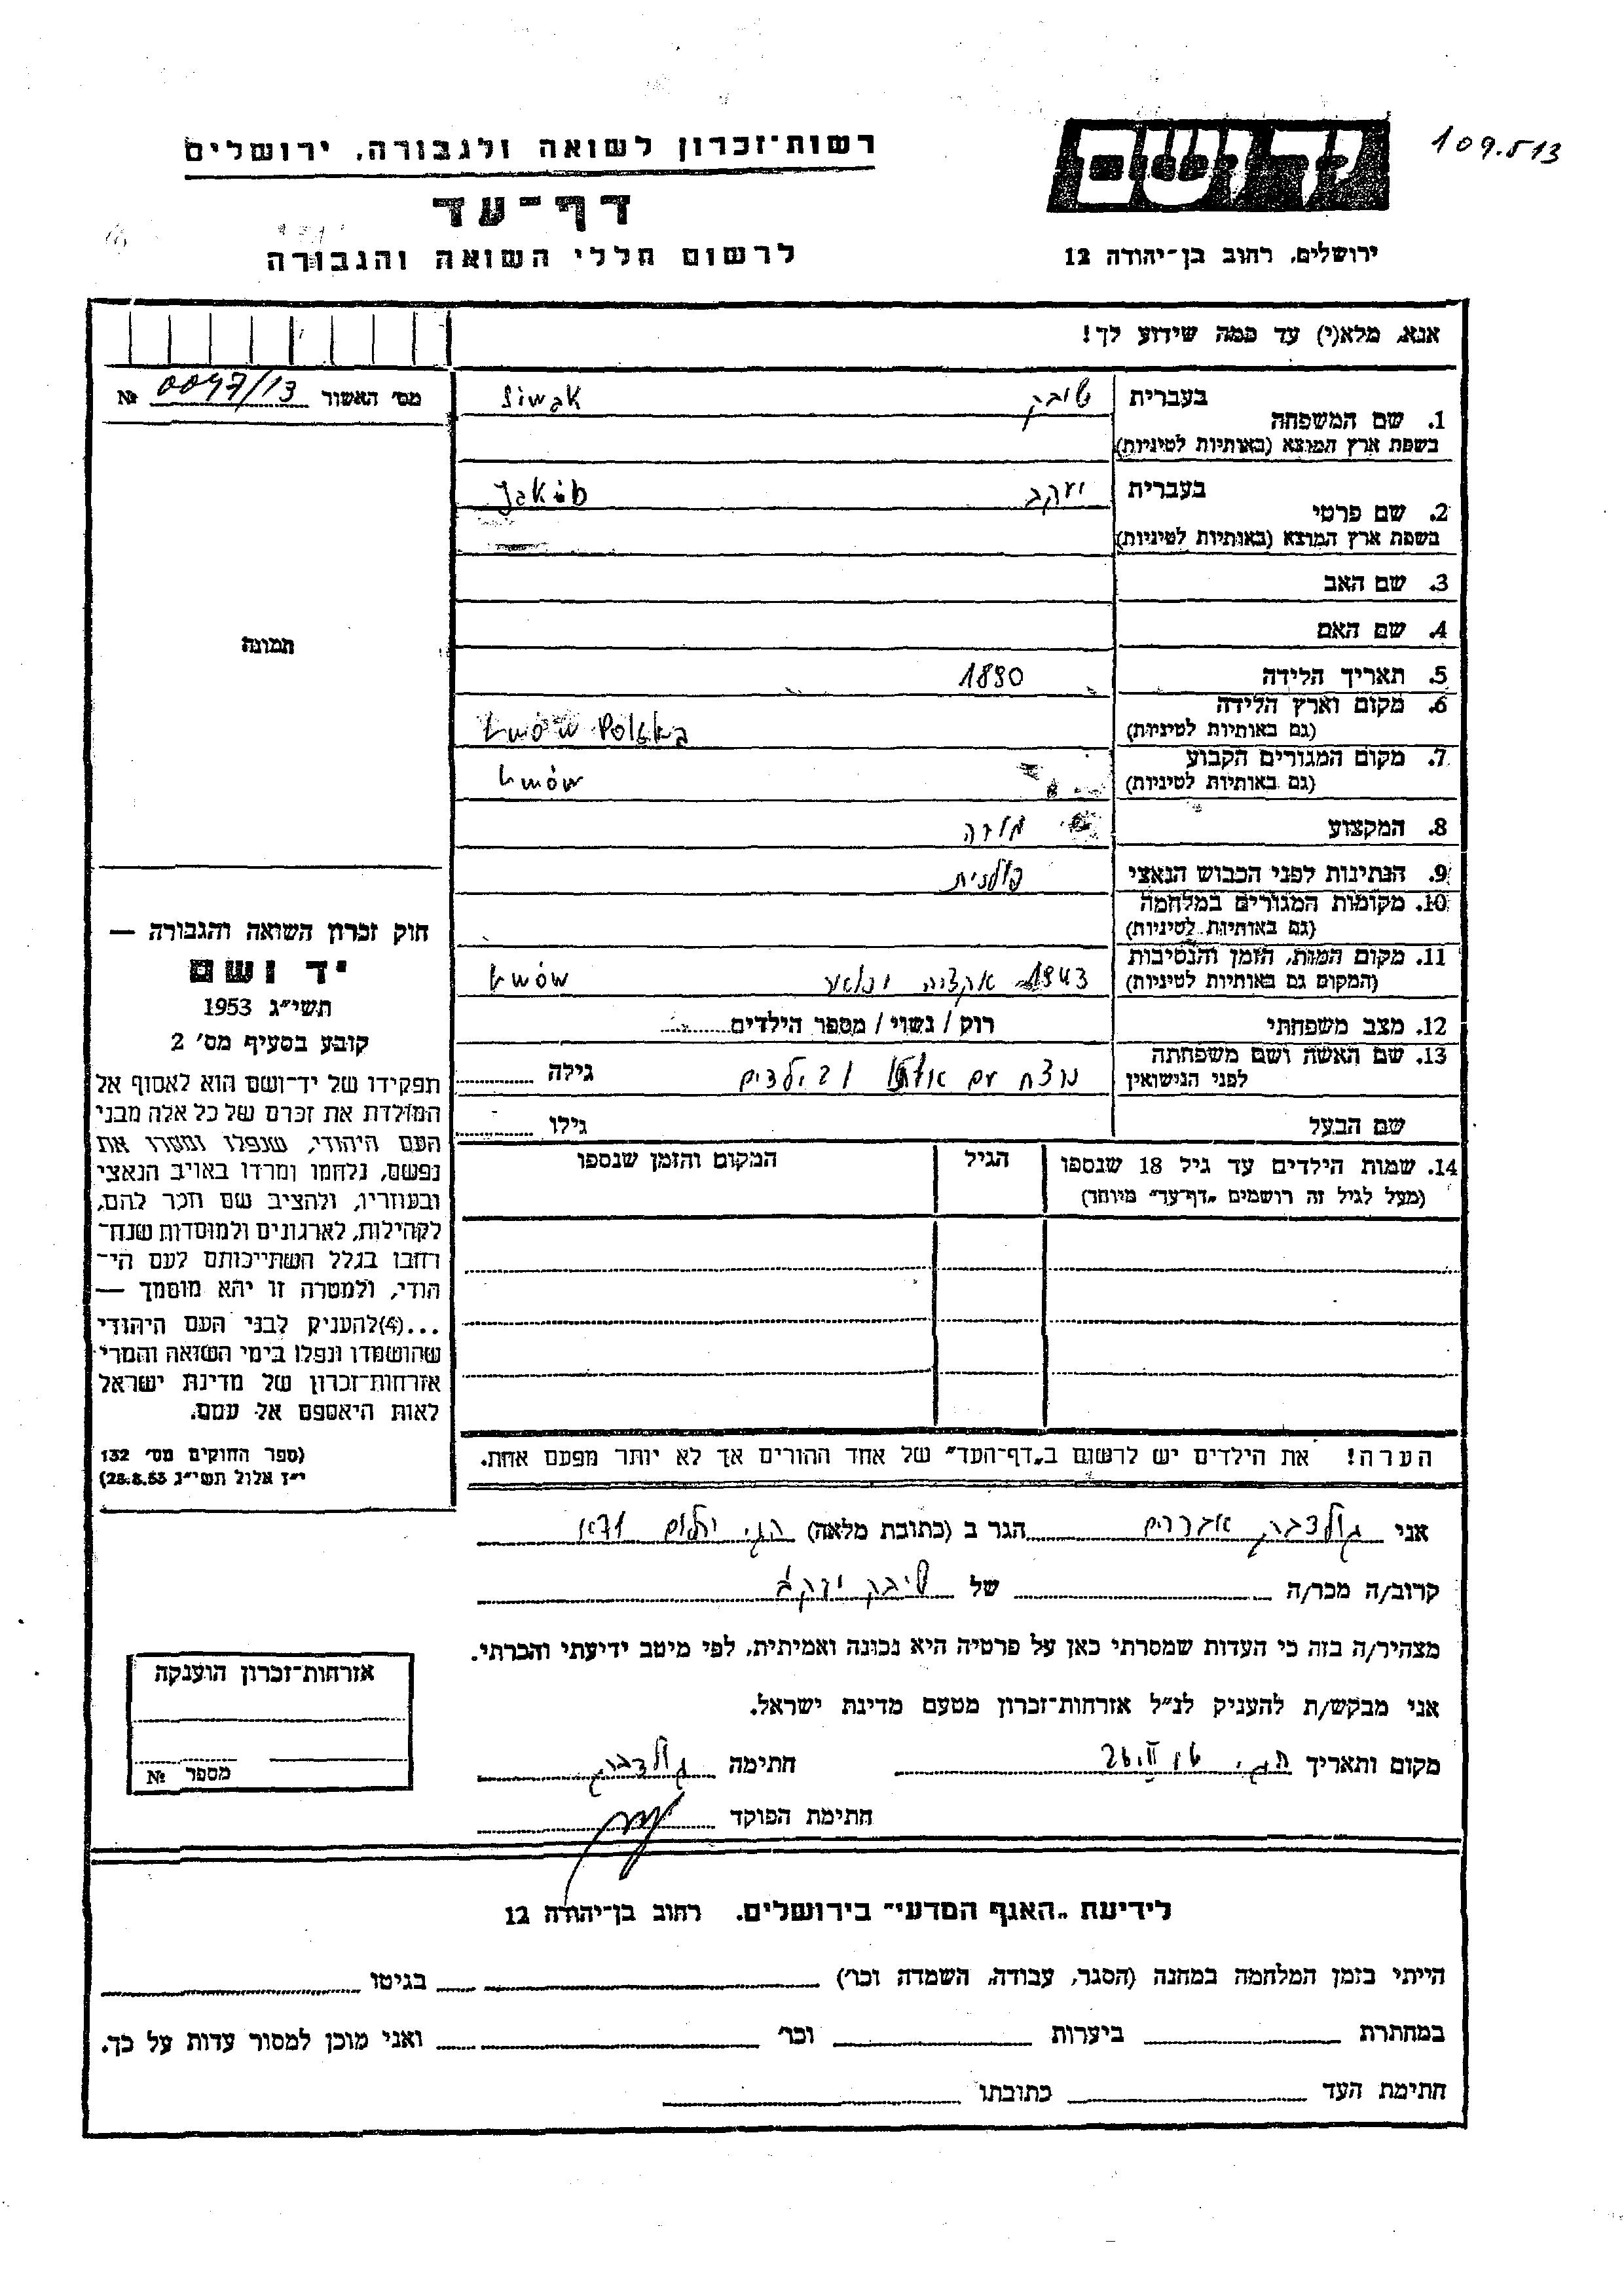 109.513
יד ושם
רשות־זכרון לשואה ולגבורה, ירושלים
דף־עד
ירושלים, רחוב בן־יהודה 12
לרשום חללי השואה והגבורה
אנא, מלא(י) עד כמה שידוע לך!
מס' האשור 0097/13 №
תמונה
חוק זכרון השואה והגבורה —
יד ושם
תשי"ג 1953
קובע בסעיף מס' 2
תפקידו של יד־ושם הוא לאסוף אל
המולדת את זכרם של כל אלה מבני
העם היהודי, שנפלו ומסרו את
נפשם, נלחמו ומרדו באויב הנאצי
ובעוזריו, ולהציב שם וזכר להם,
לקהילות, לארגונים ולמוסדות שנח־
רחבו בגלל השתייכותם לעם הי־
הודי, ולמטרה זו יהא מוסמך —
...(4)להעניק לבני העם היהודי
שהושמדו ונפלו בימי השואה והמרי
אזרחות־זכרון של מדינת ישראל
לאות היאספם אל עמם.
(ספר החוקים מס' 132
י"ז אלול תשי"ג 28.8.53)
1. שם המשפחה בעברית Siwak
בשפת ארץ המוצא (באותיות לטיניות)
2. שם פרטי בעברית יעקב Jakób
בשפת ארץ המוצא (באותיות לטיניות)
3. שם האב
4. שם האם
5. תאריך הלידה 1890
6. מקום וארץ הלידה
(גם באותיות לטיניות) Lwów Polska
7. מקום המגורים הקבוע
(גם באותיות לטיניות) Lwów
8. המקצוע מורה
9. הנתינות לפני הכבוש הנאצי פולנית
10. מקומות המגורים במלחמה
(גם באותיות לטיניות)
11. מקום המות, הזמן והנסיבות
(המקום גם באותיות לטיניות) 1943 אקציה Lwów
12. מצב משפחתי רוק / נשוי / מספר הילדים
13. שם האשה ושם משפחתה
לפני הנישואין נרצח עם אשתו ו 2 ילדים גילה
שם הבעל גילו
14. שמות הילדים עד גיל 18 שנספו הגיל המקום והזמן שנספו
(מעל לגיל זה רושמים „דף־עד" מיוחד)
הערה! את הילדים יש לרשום ב„דף־העד" של אחד ההורים אך לא יותר מפעם אחת.
אני גולדברג אברהם הגר ב (כתובת מלאה)
קרוב/ה מכר/ה של יעקב
מצהיר/ה בזה כי העדות שמסרתי כאן על פרטיה היא נכונה ואמיתית, לפי מיטב ידיעתי והכרתי.
אני מבקש/ת להעניק לנ"ל אזרחות־זכרון מטעם מדינת ישראל.
מקום ותאריך 26.II חתימה גולדברג
חתימת הפוקד
אזרחות־זכרון הוענקה
מספר №
לידיעת „האגף המדעי" בירושלים. רחוב בן־יהודה 12
הייתי בזמן המלחמה במחנה (הסגר, עבודה, השמדה וכו') בגיטו
במחתרת ביערות וכו' ואני מוכן למסור עדות על כך.
חתימת העד כתובתו